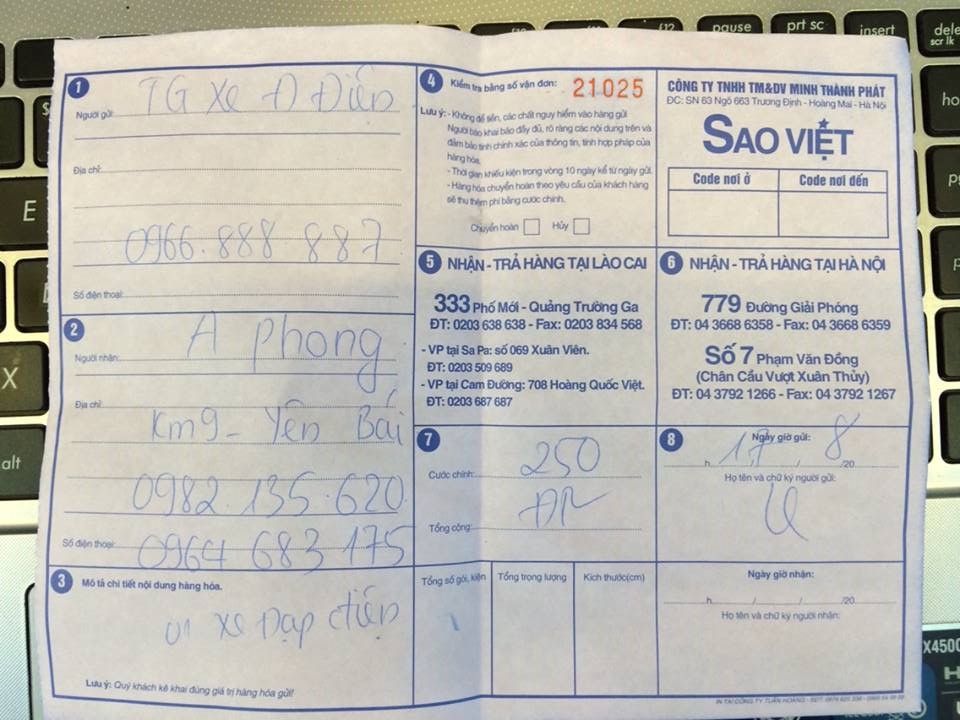 pause
prt sc
insert
scr lk
E
X
alt
1
TG Xe Đ Điện
Người gửi:
Địa chỉ:
0966.888 887
Số điện thoại:
2
A phong
Người nhận:
Địa chỉ:
Km9 - Yên Bái
0982.135.620
Số điện thoại:
0964 683 175
3 Mô tả chi tiết nội dung hàng hóa.
01 xe Đạp điện
Lưu ý: Quý khách kê khai đúng giá trị hàng hóa gửi!
4 Kiểm tra bằng số vận đơn: 21025
Lưu ý: - Không để tiền, các chất nguy hiểm vào hàng gửi
Người báo khai báo đầy đủ, rõ ràng các nội dung trên và
đảm bảo tính chính xác của thông tin, tính hợp pháp của
hàng hóa.
- Thời gian khiếu kiện trong vòng 10 ngày kể từ ngày gửi.
- Hàng hóa chuyển hoàn theo yêu cầu của khách hàng
sẽ thu thêm phí bằng cước chính.
Chuyển hoàn
Hủy
CÔNG TY TNHH TM&DV MINH THÀNH PHÁT
ĐC: SN 63 Ngõ 663 Trương Định - Hoàng Mai - Hà Nội
SAO VIỆT
Code nơi ở
Code nơi đến
5 NHẬN - TRẢ HÀNG TẠI LÀO CAI
333 Phố Mới - Quảng Trường Ga
ĐT: 0203 638 638 - Fax: 0203 834 568
- VP tại Sa Pa: số 069 Xuân Viên.
ĐT: 0203 509 689
- VP tại Cam Đường: 708 Hoàng Quốc Việt.
ĐT: 0203 687 687
6 NHẬN - TRẢ HÀNG TẠI HÀ NỘI
779 Đường Giải Phóng
ĐT: 04 3668 6358 - Fax: 04 3668 6359
Số 7 Phạm Văn Đồng
(Chân Cầu Vượt Xuân Thủy)
ĐT: 04 3792 1266 - Fax: 04 3792 1267
7
Cước chính: 250
Tổng cộng:
8 Ngày giờ gửi:
h 17 / 8 /20
Họ tên và chữ ký người gửi:
Tổng số gói, kiện
Tổng trọng lượng
Kích thước(cm)
1
Ngày giờ nhận:
h / / /20
Họ tên và chữ ký người nhận:
X4500